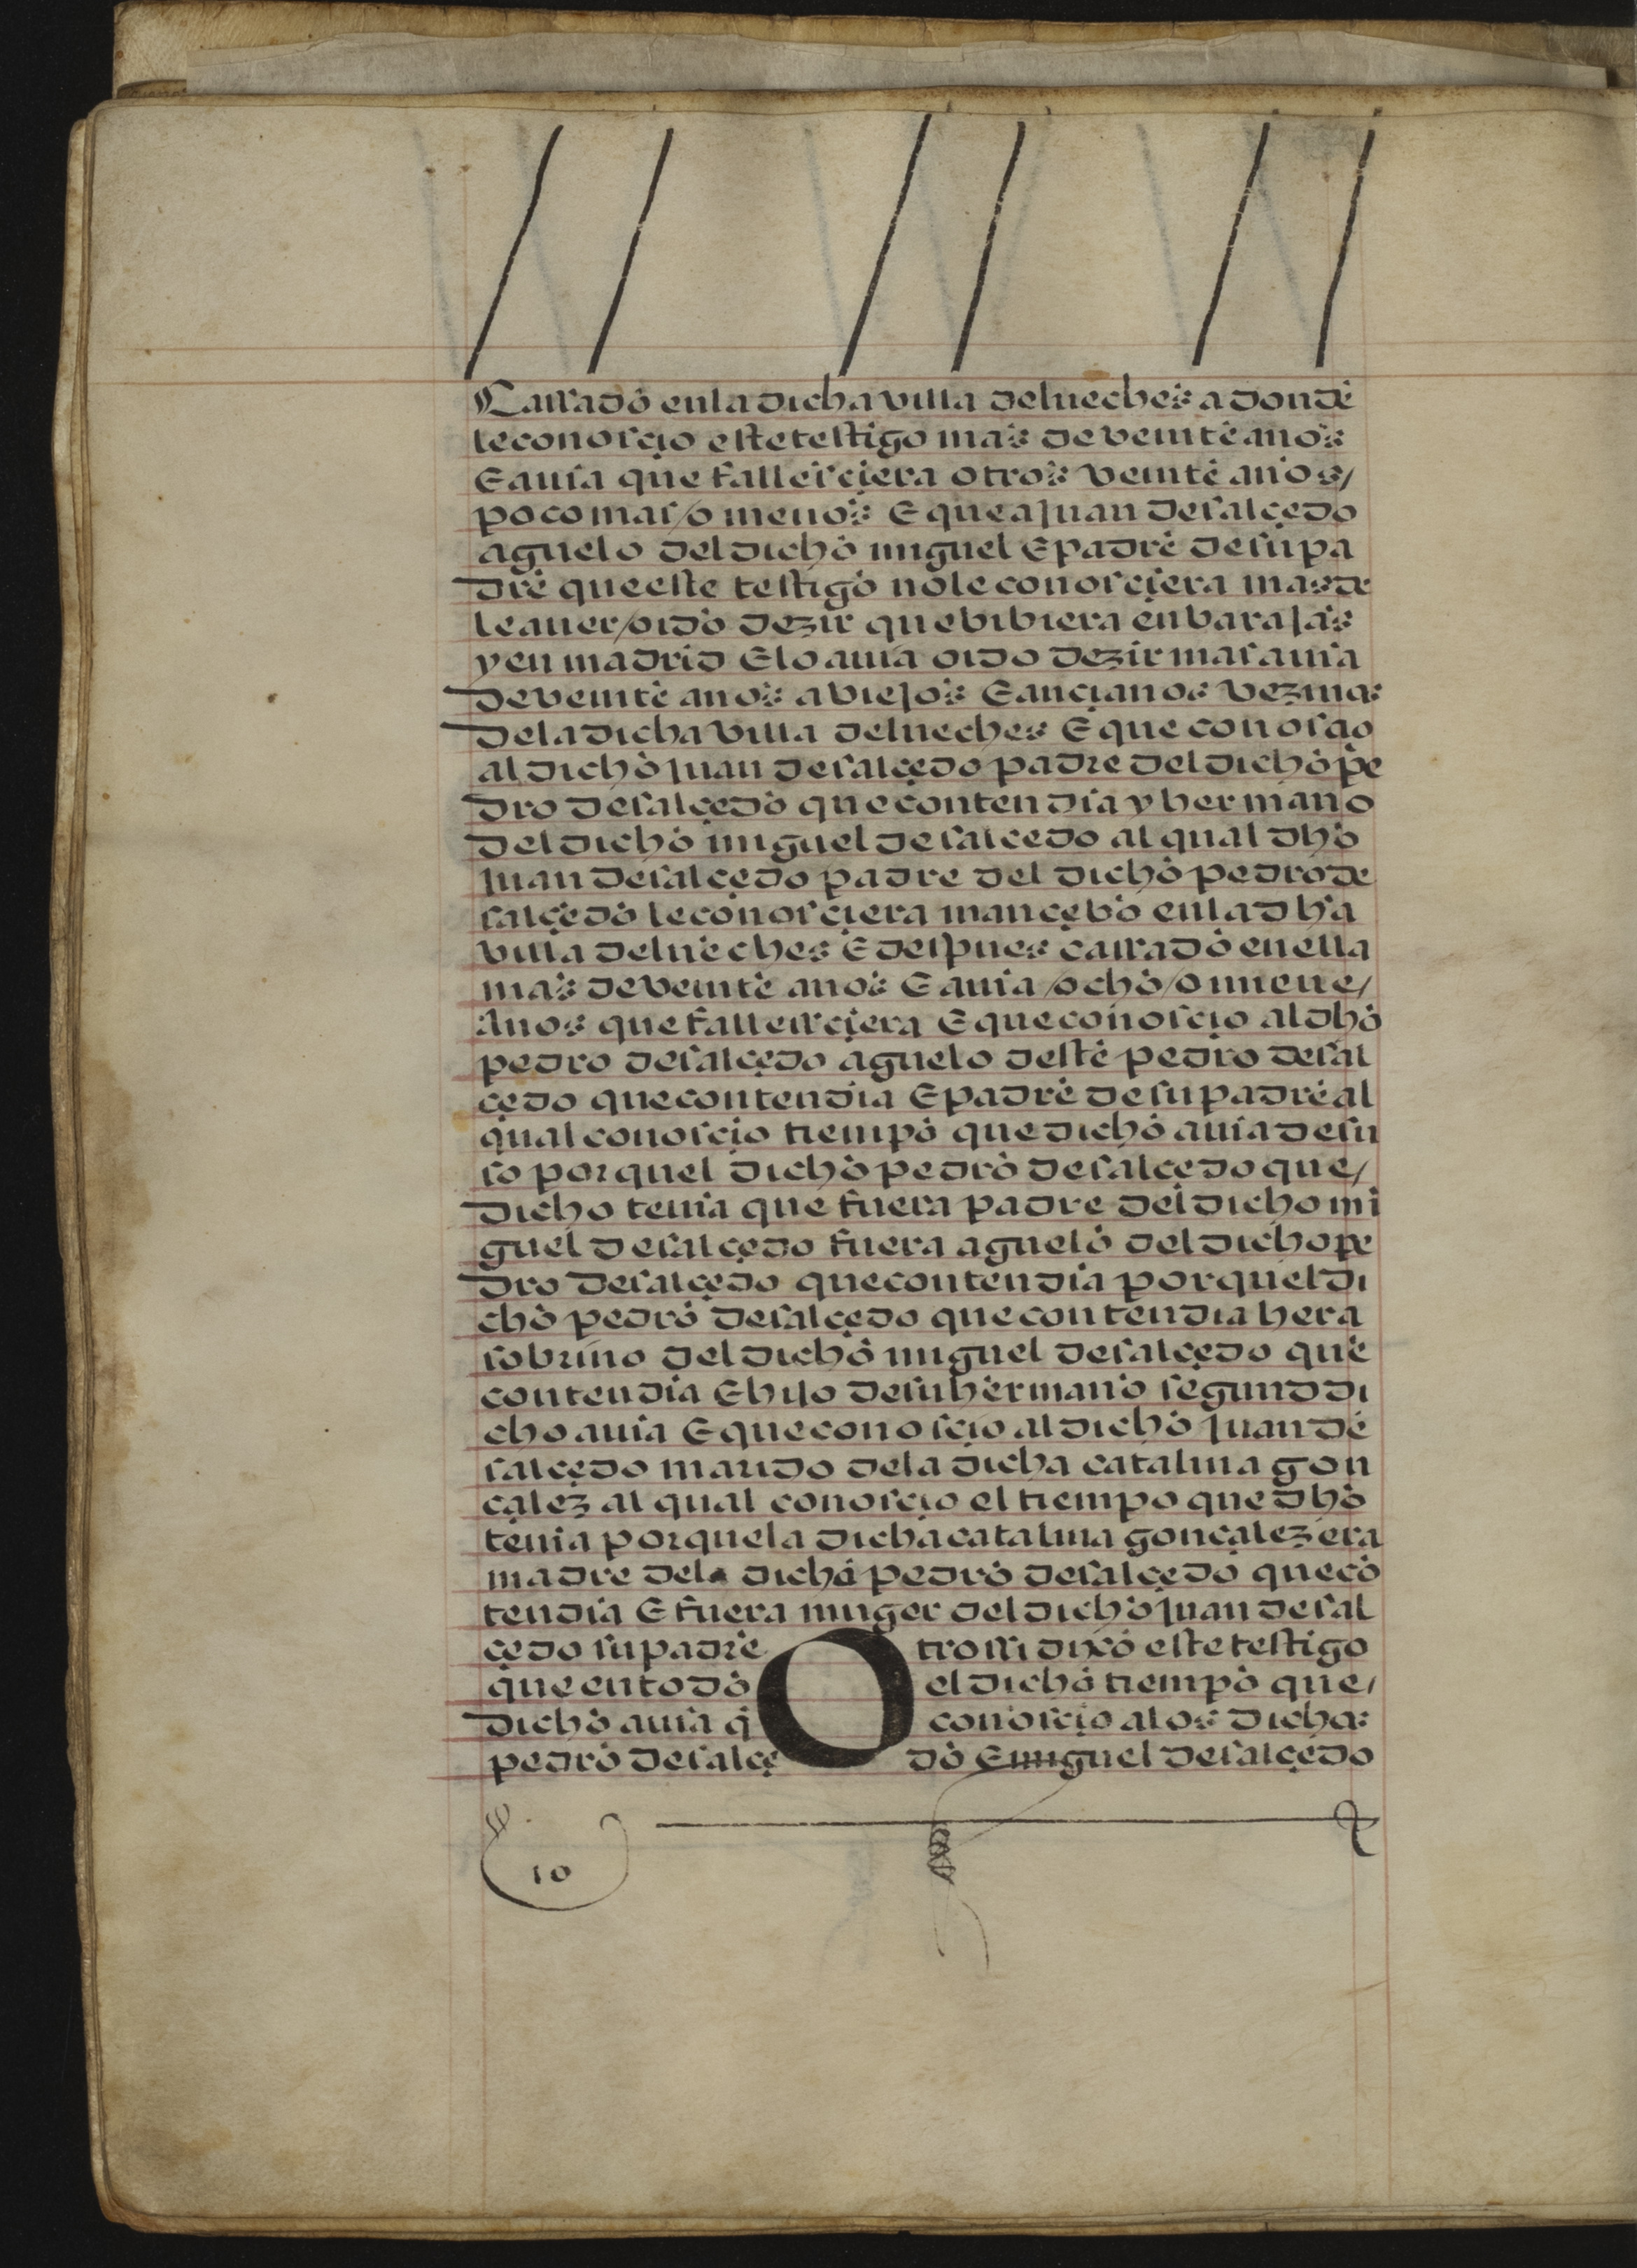 Cassado en la dicha villa de lueches a donde
le conosçio este testigo mas de veinte anos
E auia que fallesçiera otros veinte anos/
poco mas/o menos E que a Juan de salçedo
aguelo del dicho miguel E padre de su pa
dre que este testigo no le conosçiera mas de
le auer/oido dezir que bibiera en barajas
y en madrid E lo auia oido dezir mas auia
de veinte anos a viejos E ançianos vezinos
de la dicha villa de lueches E que conosçio
al dicho Juan de salçedo padre del dicho pe
dro de salçedo que contendia y hermano
del dicho miguel de salcedo al qual dho
Juan de salçedo padre del dicho pedro de
salçedo le conosçiera mançebo en la dha
villa de lueches E despues cassado en ella
mas de veinte anos E auia/ocho/o nueue/
Anos que fallessçiera E que conosçio al dho
pedro de salçedo aguelo deste pedro de sal
çedo que contendia E padre de su padre al
qual conosçio tiempo que dicho auia de su
so por quel dicho pedro de salçedo que/
dicho tenia que fuera padre del dicho mi
guel de salçedo fuera aguelo del dicho pe
dro de salçedo que contendia por quel di
cho pedro de salçedo que contendia hera
sobrino del dicho miguel de salçedo que
contendia E hijo de su hermano segund di
cho auia E que conosçio al dicho Juan de
salçedo marido de la dicha catalina gon
çalez al qual conosçio el tiempo que dho
tenia por que la dicha catalina gonçalez era
madre del dicho pedro de salçedo que cõ
tendia E fuera muger del dicho Juan de sal
çedo su padre Otrossi dixo este testigo
que en todo el dicho tiempo que/
dicho auia q̃ conosçio a los dichos
pedro de salçedo E miguel de salçedo
10